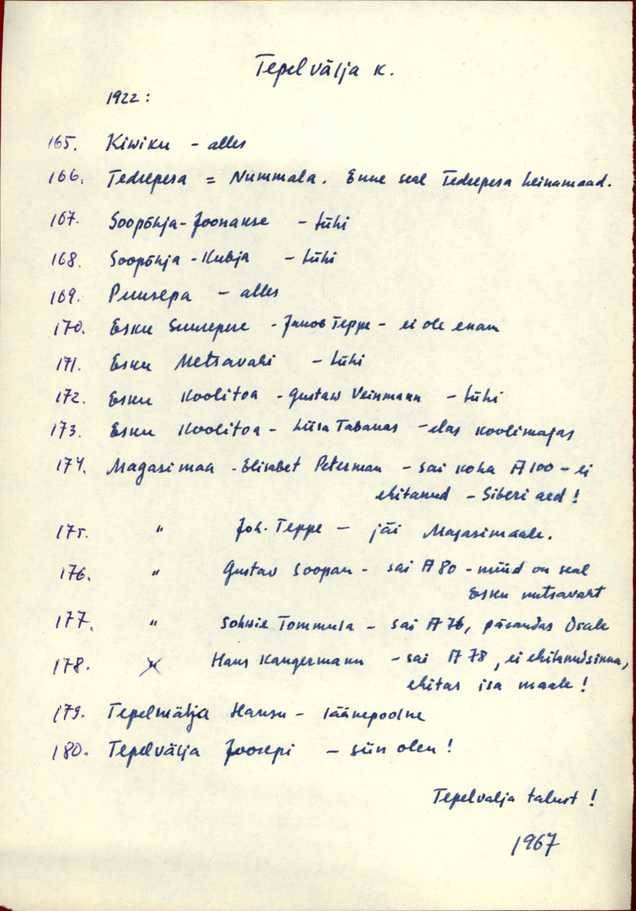 Tepelvälja k.
1922:
165. Kiwiku - alles
166. Tedrepesa = Nummala. Enne seal Tedrepesa heinamaad.
167. Soopõhja-Joonakse - tühi
168. Soopõhja-Kubja - tühi
169. Puusepa - alles
170. Esku Suurepere - Jakob Teppe - ei ole enam
171. Esku Metsavahi - tühi
172. Esku Koolitoa - Gustaw Veinmann - tühi
173. Esku Koolitoa - Liisa Tabanas - elas koolimajas
174. Magasimaa - Elisabet Peterman - sai koha A100 - ei
ehitanud - Siberi aed!
175. " Joh. Teppe - jäi Magasimaale.
176. " Gustav Soopan - sai A80 - nüüd on seal
Esku metsavaht
177. " Sohwie Tommula - sai A76, pärandas Osale
178. " Hans Kangermann - sai A78, ei ehitanud sinna,
ehitas isa maale!
179. Tepelmälja Hansu - läänepoolne
180. Tepelvälja Joosepi - siin olen!
Tepelvalja talust!
1967